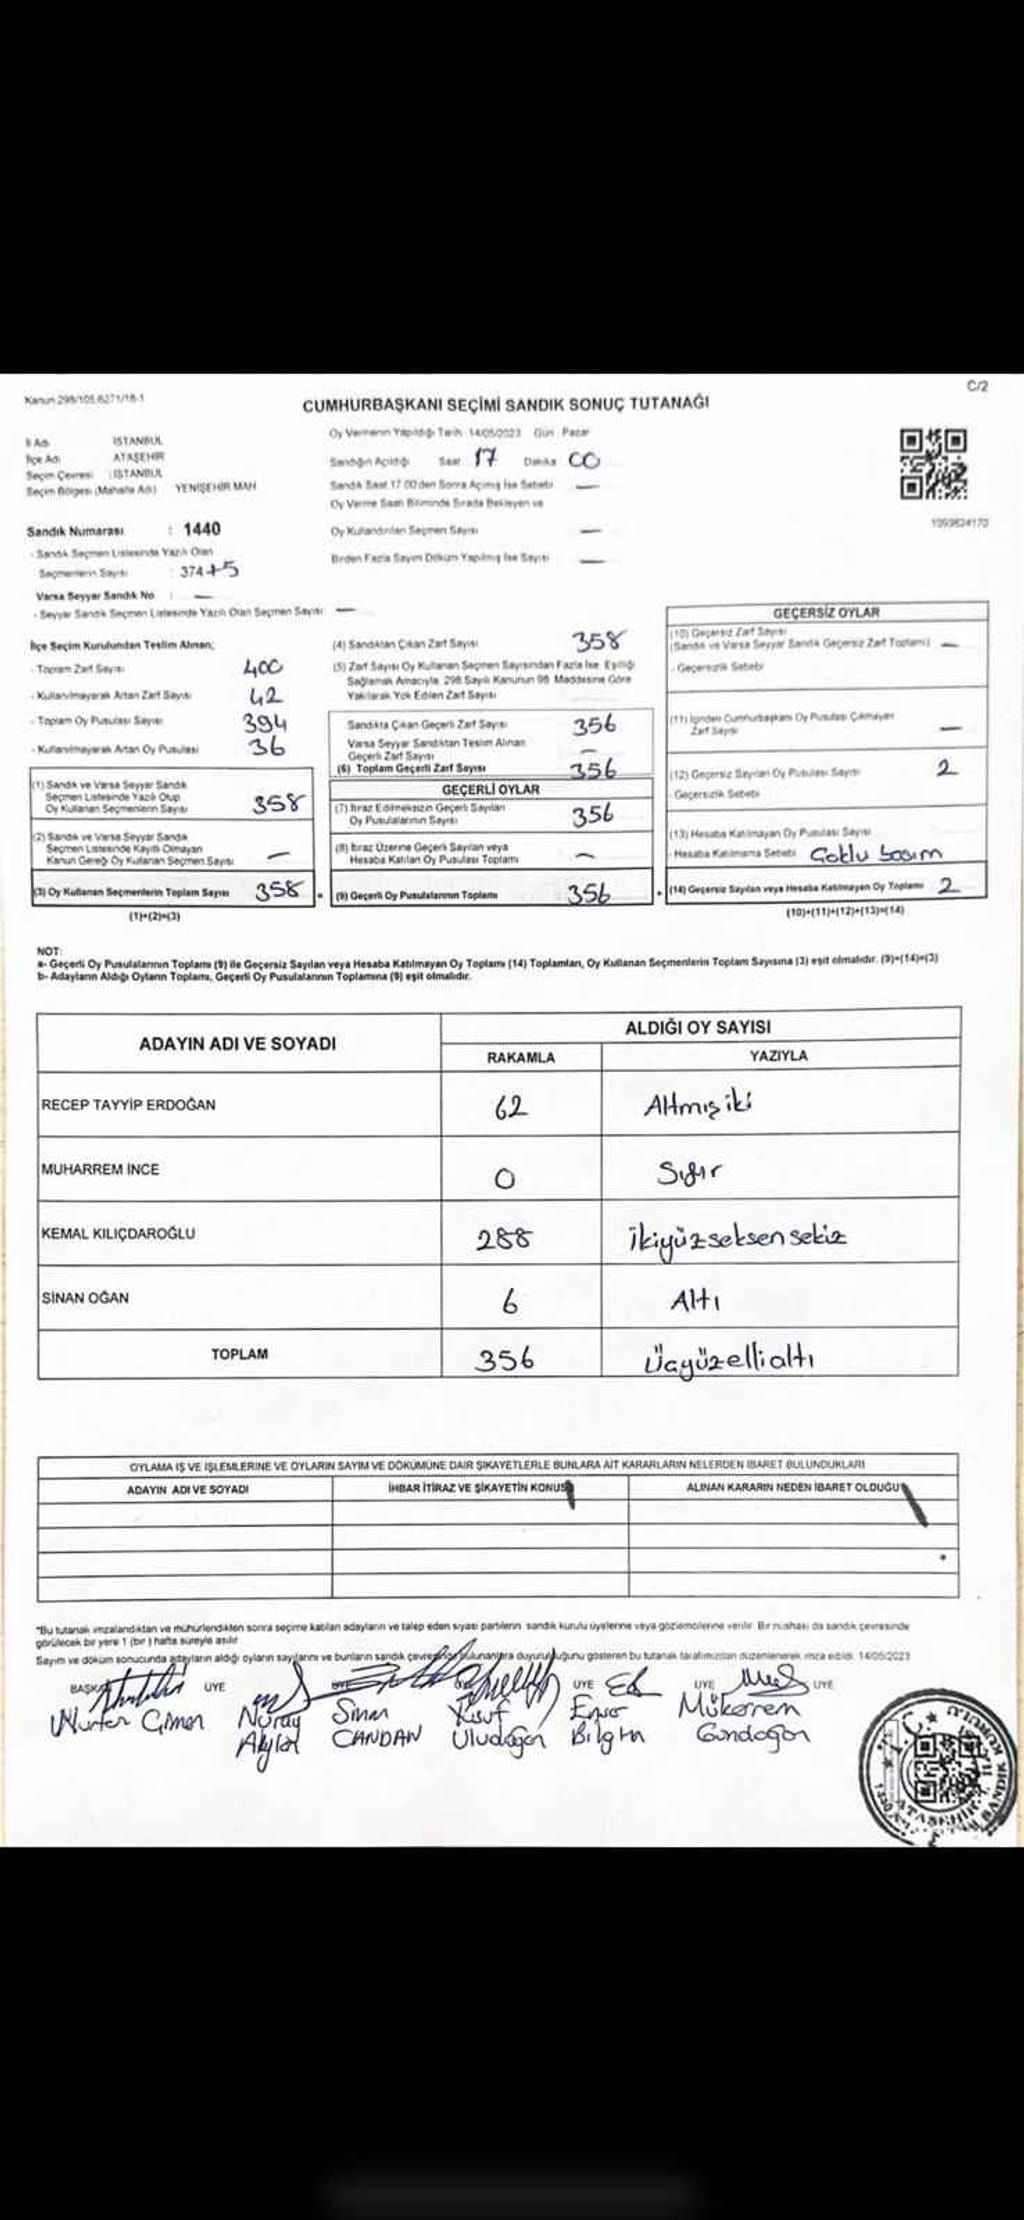 Kanun 298/105.6271/18-1
C/2
CUMHURBAŞKANI SEÇİMİ SANDIK SONUÇ TUTANAĞI
İl Adı İSTANBUL
İlçe Adı ATAŞEHİR
Seçim Çevresi : İSTANBUL
Seçim Bölgesi (Mahalle Adı) YENİŞEHİR MAH
Oy Vermenin Yapıldığı Tarih 14/05/2023 Gün Pazar
Sandığın Açıldığı Saat 17 Dakika 00
Sandık Saat 17.00'den Sonra Açılmış İse Sebebi —
Oy Verme Saati Bitiminde Sırada Bekleyen ve
Oy Kullandırılan Seçmen Sayısı —
Birden Fazla Sayım Döküm Yapılmış İse Sayısı —
1093824170
Sandık Numarası : 1440
- Sandık Seçmen Listesinde Yazılı Olan
Seçmenlerin Sayısı : 374+5
Varsa Seyyar Sandık No : —
- Seyyar Sandık Seçmen Listesinde Yazılı Olan Seçmen Sayısı —
İlçe Seçim Kurulundan Teslim Alınan;
- Toplam Zarf Sayısı 400
- Kullanılmayarak Artan Zarf Sayısı 42
- Toplam Oy Pusulası Sayısı 394
- Kullanılmayarak Artan Oy Pusulası 36
(1) Sandık ve Varsa Seyyar Sandık
Seçmen Listesinde Yazılı Olup
Oy Kullanan Seçmenlerin Sayısı 358
(2) Sandık ve Varsa Seyyar Sandık
Seçmen Listesinde Kayıtlı Olmayan
Kanun Gereği Oy Kullanan Seçmen Sayısı —
(3) Oy Kullanan Seçmenlerin Toplam Sayısı 358
(1)+(2)=(3)
(4) Sandıktan Çıkan Zarf Sayısı 358
(5) Zarf Sayısı Oy Kullanan Seçmen Sayısından Fazla İse, Eşitliği
Sağlamak Amacıyla, 298 Sayılı Kanunun 98. Maddesine Göre
Yakılarak Yok Edilen Zarf Sayısı
Sandıkta Çıkan Geçerli Zarf Sayısı 356
Varsa Seyyar Sandıktan Teslim Alınan
Geçerli Zarf Sayısı —
(6) Toplam Geçerli Zarf Sayısı 356
GEÇERLİ OYLAR
(7) İtiraz Edilmeksizin Geçerli Sayılan
Oy Pusulalarının Sayısı 356
(8) İtiraz Üzerine Geçerli Sayılan veya
Hesaba Katılan Oy Pusulası Toplamı —
(9) Geçerli Oy Pusulalarının Toplamı 356
GEÇERSİZ OYLAR
(10) Geçersiz Zarf Sayısı
(Sandık ve Varsa Seyyar Sandık Geçersiz Zarf Toplamı) —
- Geçersizlik Sebebi
(11) İçinden Cumhurbaşkanı Oy Pusulası Çıkmayan
Zarf Sayısı —
(12) Geçersiz Sayılan Oy Pusulası Sayısı 2
- Geçersizlik Sebebi
(13) Hesaba Katılmayan Oy Pusulası Sayısı
- Hesaba Katılmama Sebebi Çoklu basım
(14) Geçersiz Sayılan veya Hesaba Katılmayan Oy Toplamı 2
(10)+(11)+(12)+(13)=(14)
NOT:
a- Geçerli Oy Pusulalarının Toplamı (9) ile Geçersiz Sayılan veya Hesaba Katılmayan Oy Toplamı (14) Toplamları, Oy Kullanan Seçmenlerin Toplam Sayısına (3) eşit olmalıdır. (9)+(14)=(3)
b- Adayların Aldığı Oyların Toplamı, Geçerli Oy Pusulalarının Toplamına (9) eşit olmalıdır.
ADAYIN ADI VE SOYADI
ALDIĞI OY SAYISI
RAKAMLA YAZIYLA
RECEP TAYYİP ERDOĞAN 62 Altmış iki
MUHARREM İNCE 0 Sıfır
KEMAL KILIÇDAROĞLU 288 ikiyüzseksen sekiz
SİNAN OĞAN 6 Altı
TOPLAM 356 Üçyüzellialtı
OYLAMA İŞ VE İŞLEMLERİNE VE OYLARIN SAYIM VE DÖKÜMÜNE DAİR ŞİKAYETLERLE BUNLARA AİT KARARLARIN NELERDEN İBARET BULUNDUKLARI
ADAYIN ADI VE SOYADI İHBAR İTİRAZ VE ŞİKAYETİN KONUSU ALINAN KARARIN NEDEN İBARET OLDUĞU
*Bu tutanak imzalandıktan ve mühürlendikten sonra seçime katılan adayların ve talep eden siyasi partilerin sandık kurulu üyelerine veya gözlemcilerine verilir. Bir nüshası da sandık çevresinde
görülecek bir yere 1 (bir) hafta süreyle asılır.
Sayım ve döküm sonucunda adayların aldığı oyların sayılarını ve bunların sandık çevresinde bulunanlara duyurulduğunu gösteren bu tutanak tarafımızdan düzenlenerek imza edildi. 14/05/2023
BAŞKAN ÜYE ÜYE ÜYE ÜYE
Nurten Çimen Nuray Sinan Yusuf Mükerrem
CANDAN Uludoğan Bilgin Gündoğan
T.C.
ATAŞEHİR
SANDIK KURULU